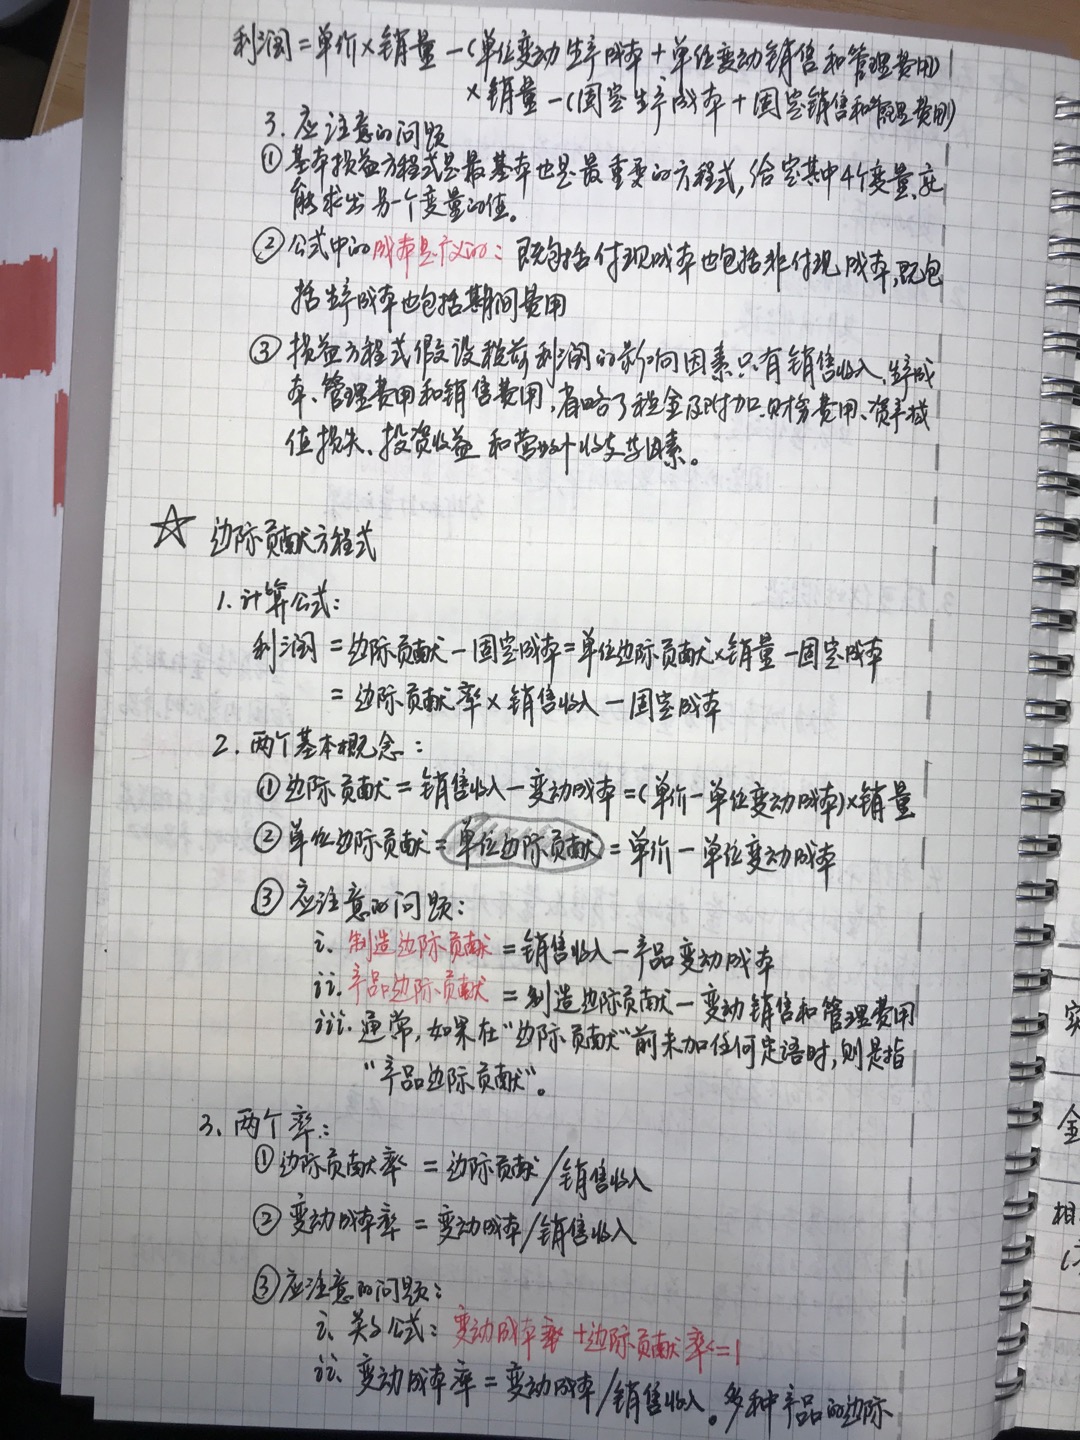 利润=单价×销量-(单位变动生产成本+单位变动销售和管理费用)
×销量-(固定生产成本+固定销售和管理费用)
3.应注意的问题
①基本损益方程式是最基本也是最重要的方程式,给定其中4个变量,就
能求出另一个变量的值。
②公式中的成本是广义的:既包括付现成本也包括非付现成本,既包
括生产成本也包括期间费用
③损益方程式假设税前利润的影响因素只有销售收入、生产成
本、管理费用和销售费用,省略了税金及附加、财务费用、资产减
值损失、投资收益和营业外收支等因素。
☆ 边际贡献方程式
1.计算公式:
利润=边际贡献-固定成本=单位边际贡献×销量-固定成本
=边际贡献率×销售收入-固定成本
2.两个基本概念:
①边际贡献=销售收入-变动成本=(单价-单位变动成本)×销量
②单位边际贡献=单位边际贡献=单价-单位变动成本
③应注意的问题:
i.制造边际贡献=销售收入-产品变动成本
ii.产品边际贡献=制造边际贡献-变动销售和管理费用
iii.通常,如果在"边际贡献"前未加任何定语时,则是指
"产品边际贡献"。
3.两个率:
①边际贡献率=边际贡献/销售收入
②变动成本率=变动成本/销售收入
③应注意的问题:
i.关系公式:变动成本率+边际贡献率=1
ii.变动成本率=变动成本/销售收入。多种产品的边际
金
相